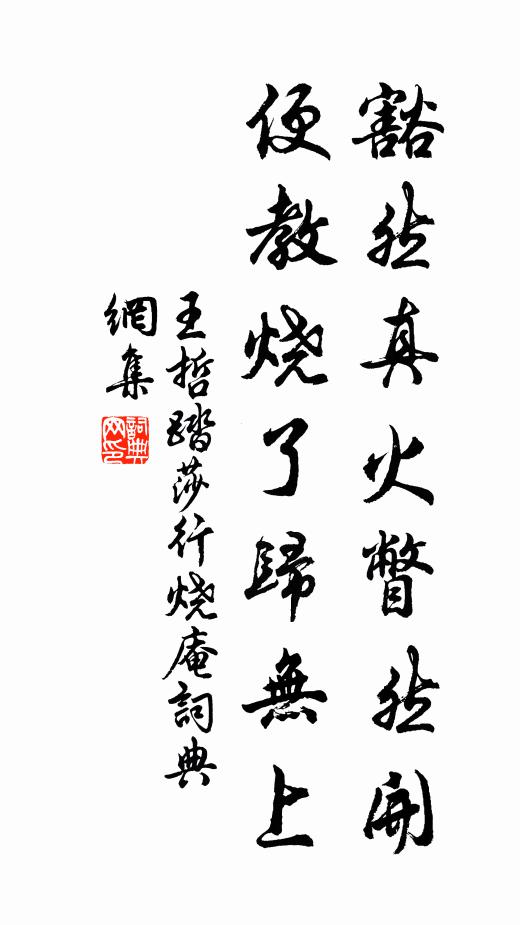 豁然真火瞥然開
便教烧了歸無上
王哲踏莎行烧庵詞典
網集
詞典
网印